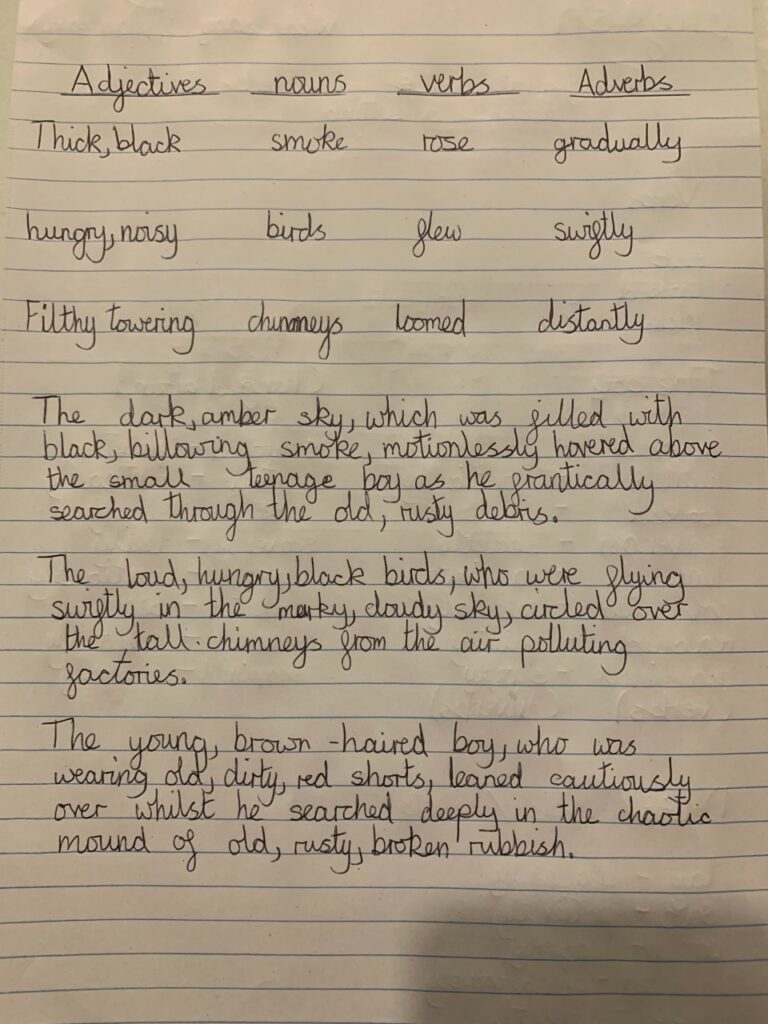 Adjectives nouns verbs Adverbs
Thick, black smoke rose gradually
hungry, noisy birds flew swiftly
Filthy towering chimneys loomed distantly
The dark, amber sky, which was filled with
black, billowing smoke, motionlessly hovered above
the small teenage boy as he frantically
searched through the old, rusty debris.
The loud, hungry, black birds, who were flying
swiftly in the murky, cloudy sky, circled over
the tall chimneys from the air polluting
factories.
The young, brown-haired boy, who was
wearing old, dirty, red shorts, leaned cautiously
over whilst he searched deeply in the chaotic
mound of old, rusty, broken rubbish.